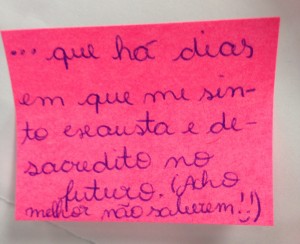 ... que há dias
em que me sin-
to exausta e de-
sacredito no
futuro. (Acho
melhor não saberem!!)